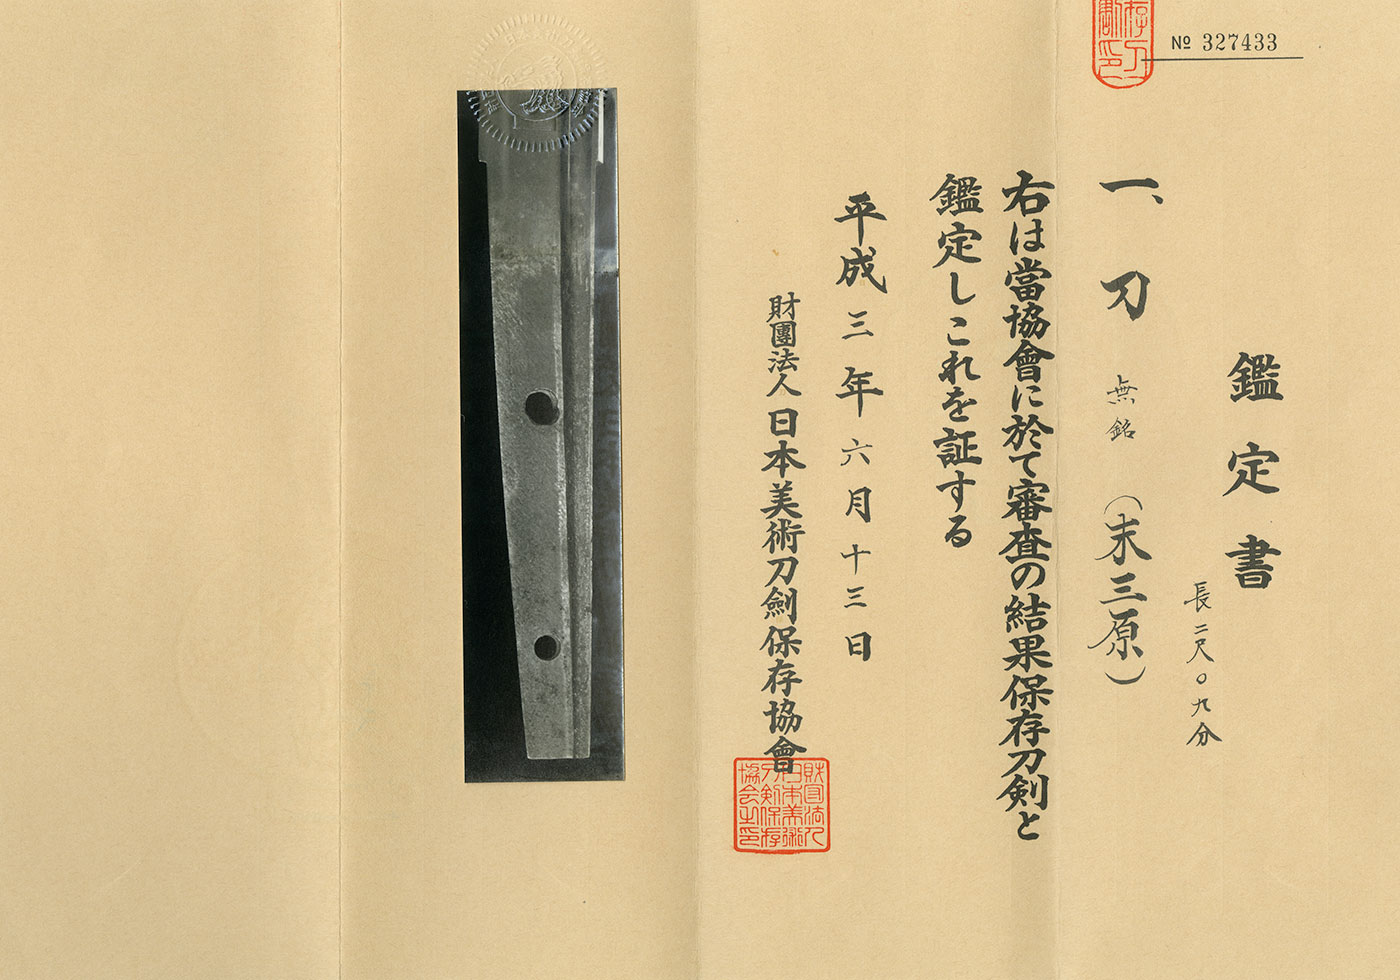 № 327433
鑑定書
長二尺〇九分
一、刀 無銘 （末三原）
右は當協會に於て審査の結果保存刀剣と
鑑定しこれを証する
平成三年六月十三日
財團法人 日本美術刀劍保存協會
財団法人
日本美術
刀剣保存
協会之印